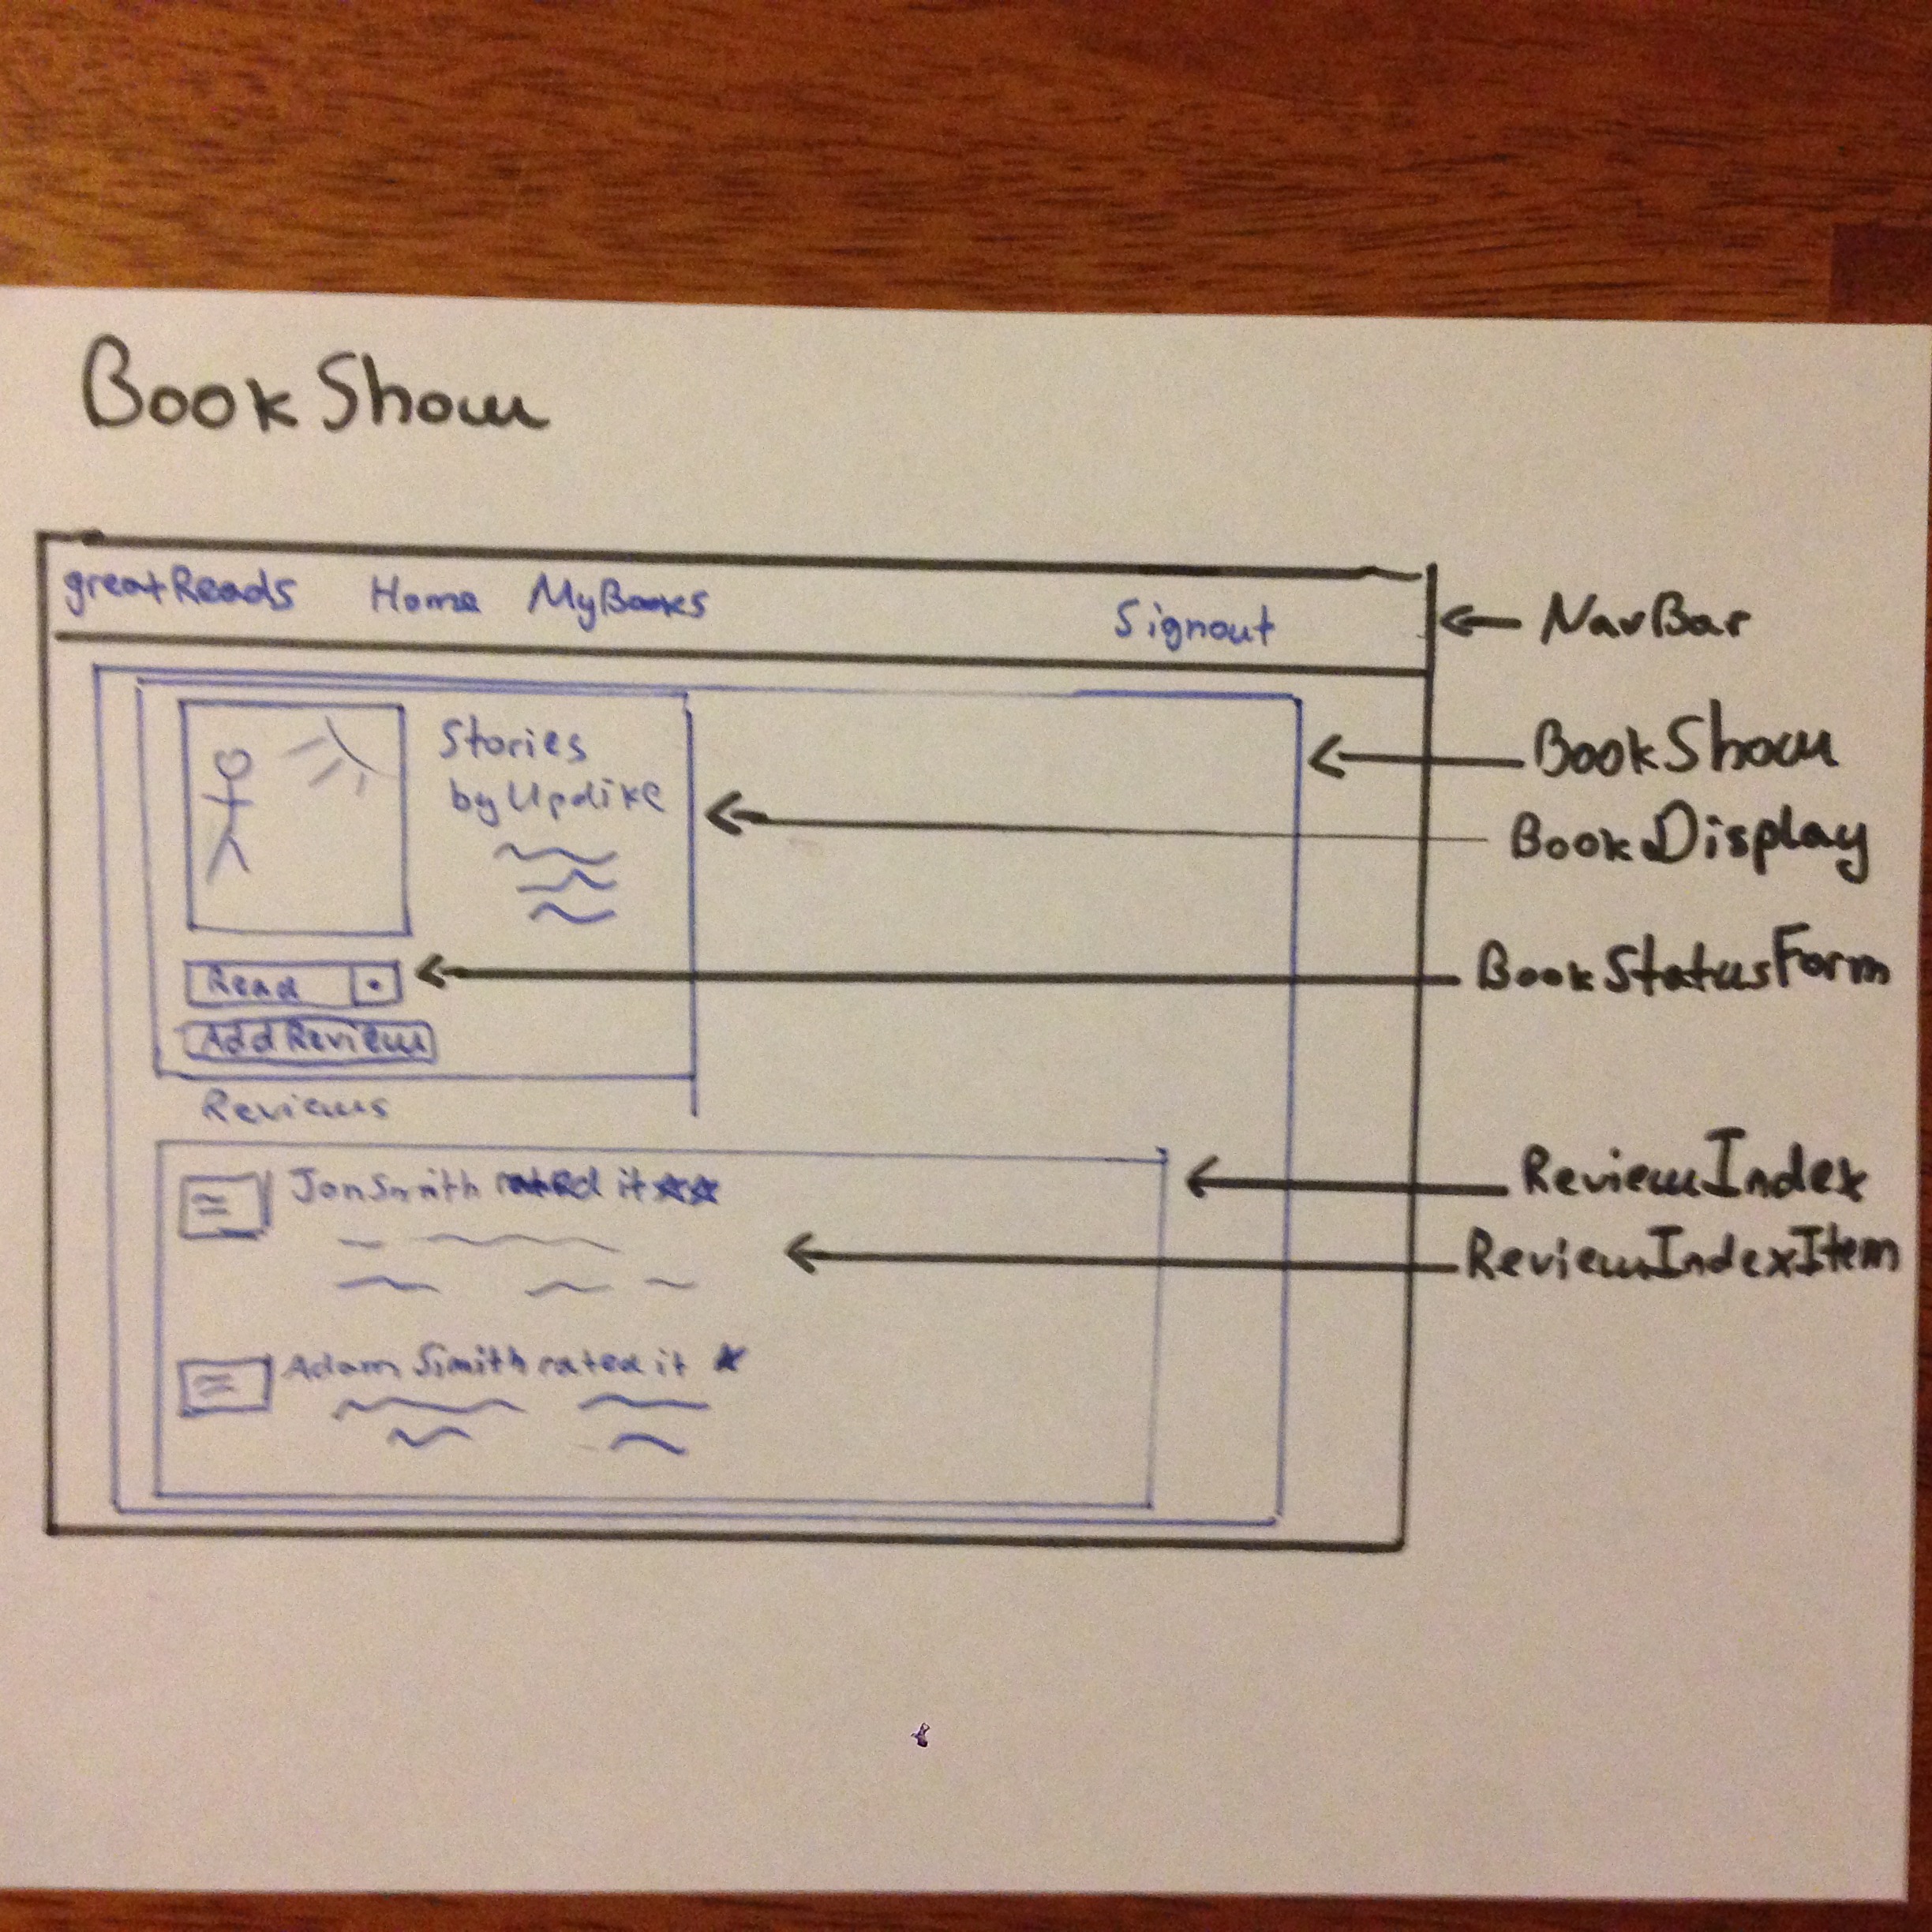 BookShow
greatReads Home MyBooks Signout
NavBar
BookShow
Stories
by Updike
BookDisplay
Read
BookStatusForm
Add Review
Reviews
Jon Smith rated it ★★
ReviewIndex
ReviewIndexItem
Adam Smith rated it ★